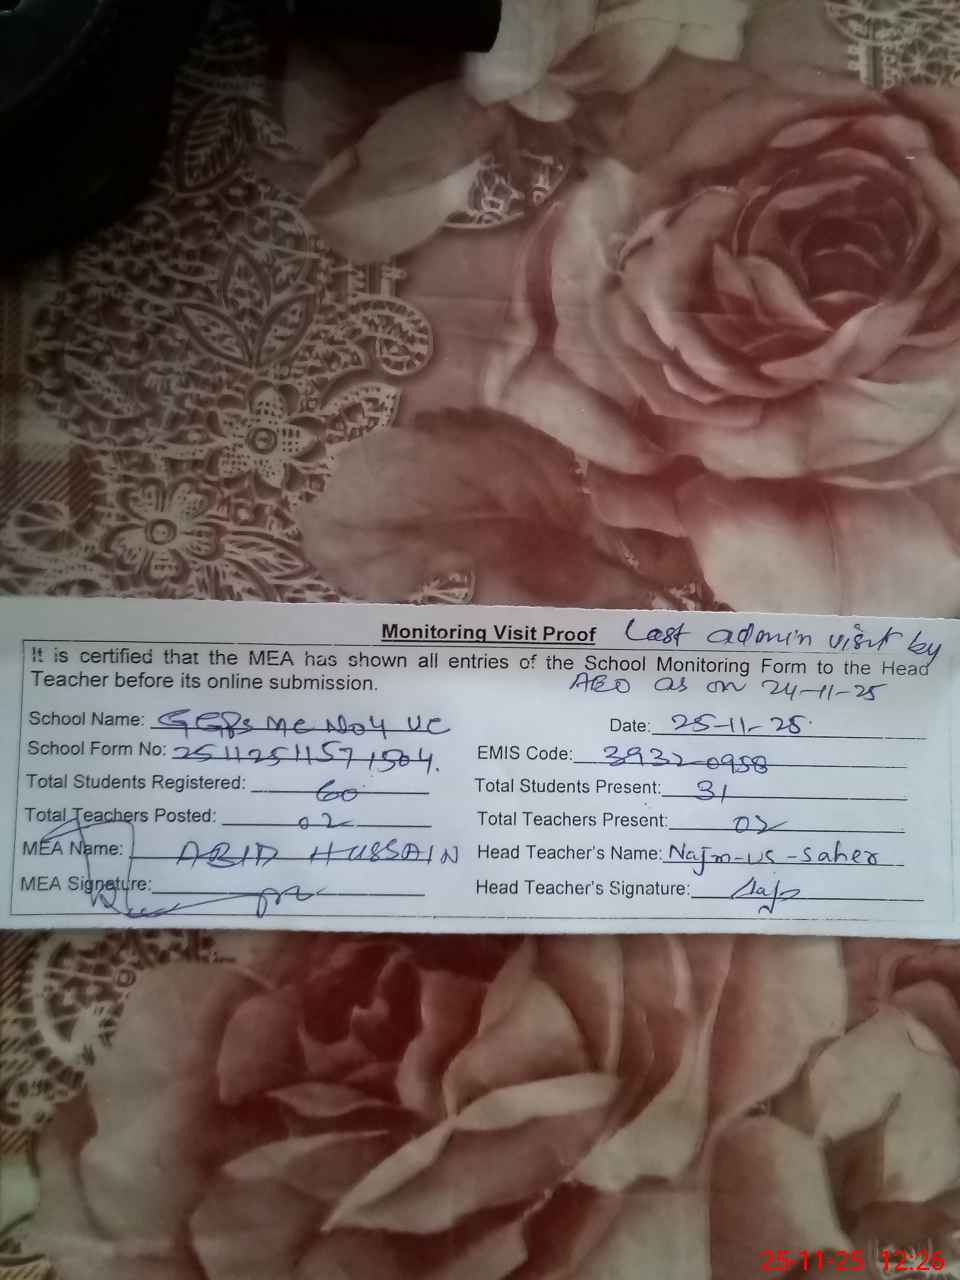 Monitoring Visit Proof Last admin visit by
It is certified that the MEA has shown all entries of the School Monitoring Form to the Head
AEO as on 24-11-25
Teacher before its online submission.
School Name: GGPS MC No4 UC Date: 25-11-25
School Form No: 25112511571504. EMIS Code: 39320958
Total Students Registered: 60 Total Students Present: 31
Total Teachers Posted: 02 Total Teachers Present: 02
MEA Name: ABID HUSSAIN Head Teacher's Name: Najm-us-saher
MEA Signature: Head Teacher's Signature:
25-11-25 12:26